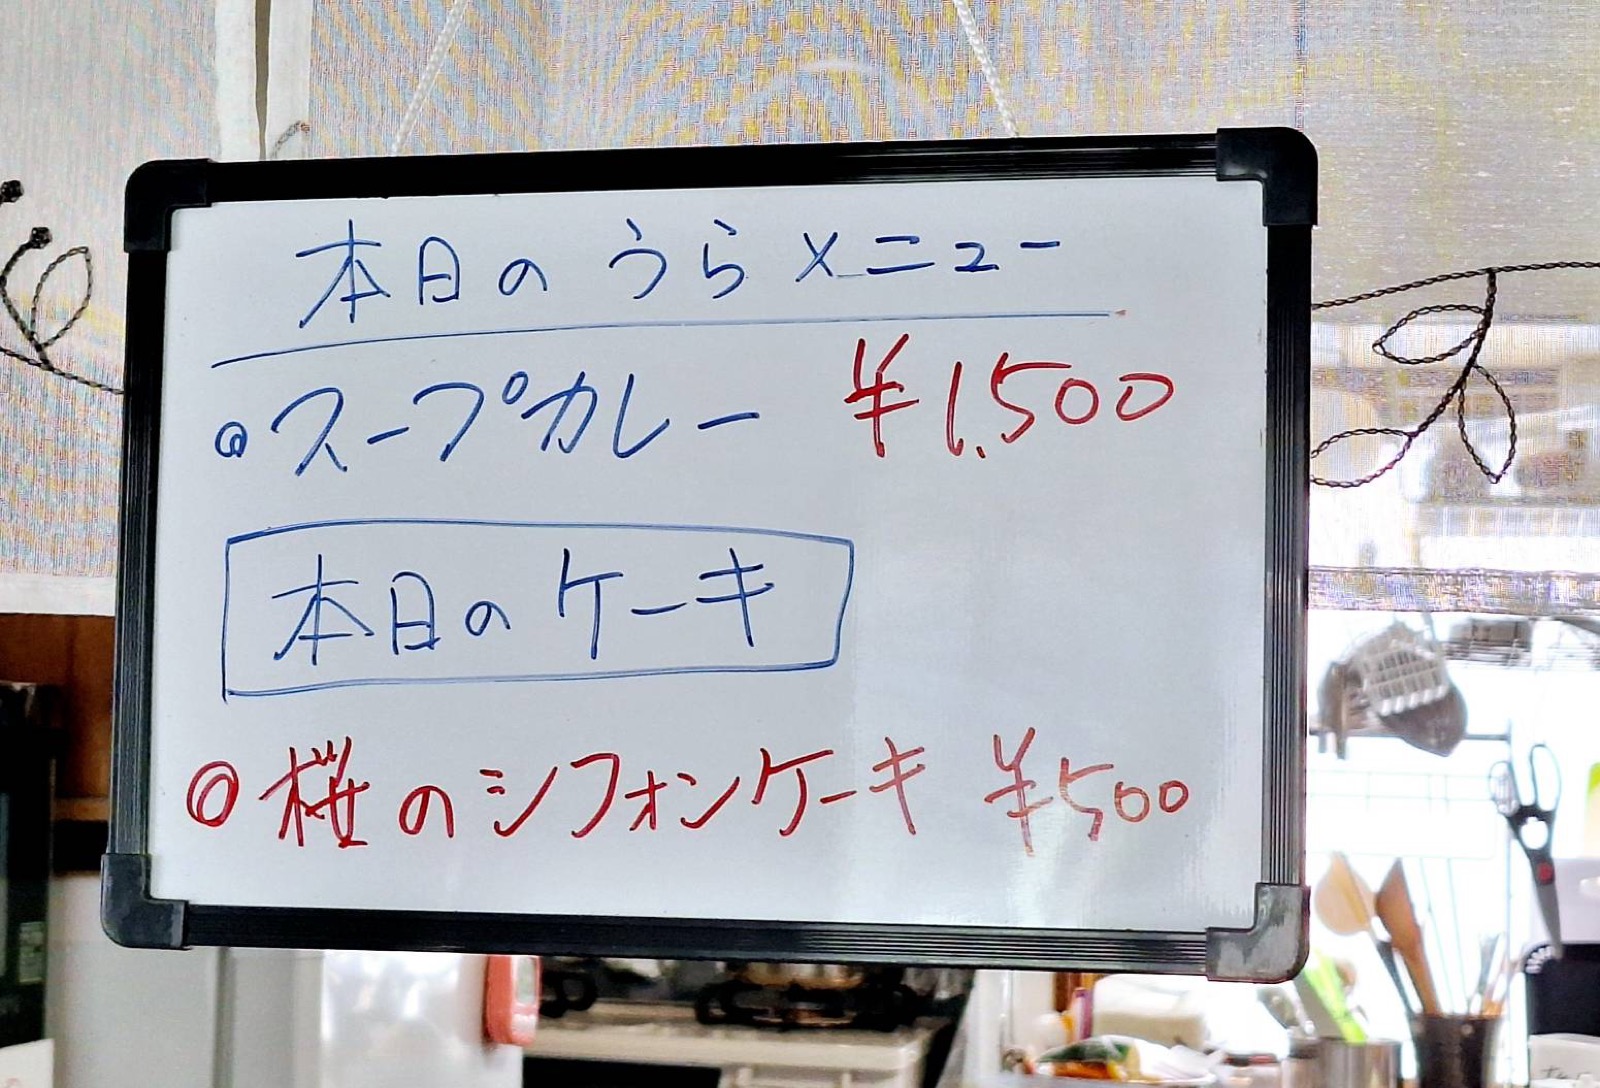 本日のうらメニュー
◎スープカレー ¥1.500
本日のケーキ
◎桜のシフォンケーキ ¥500